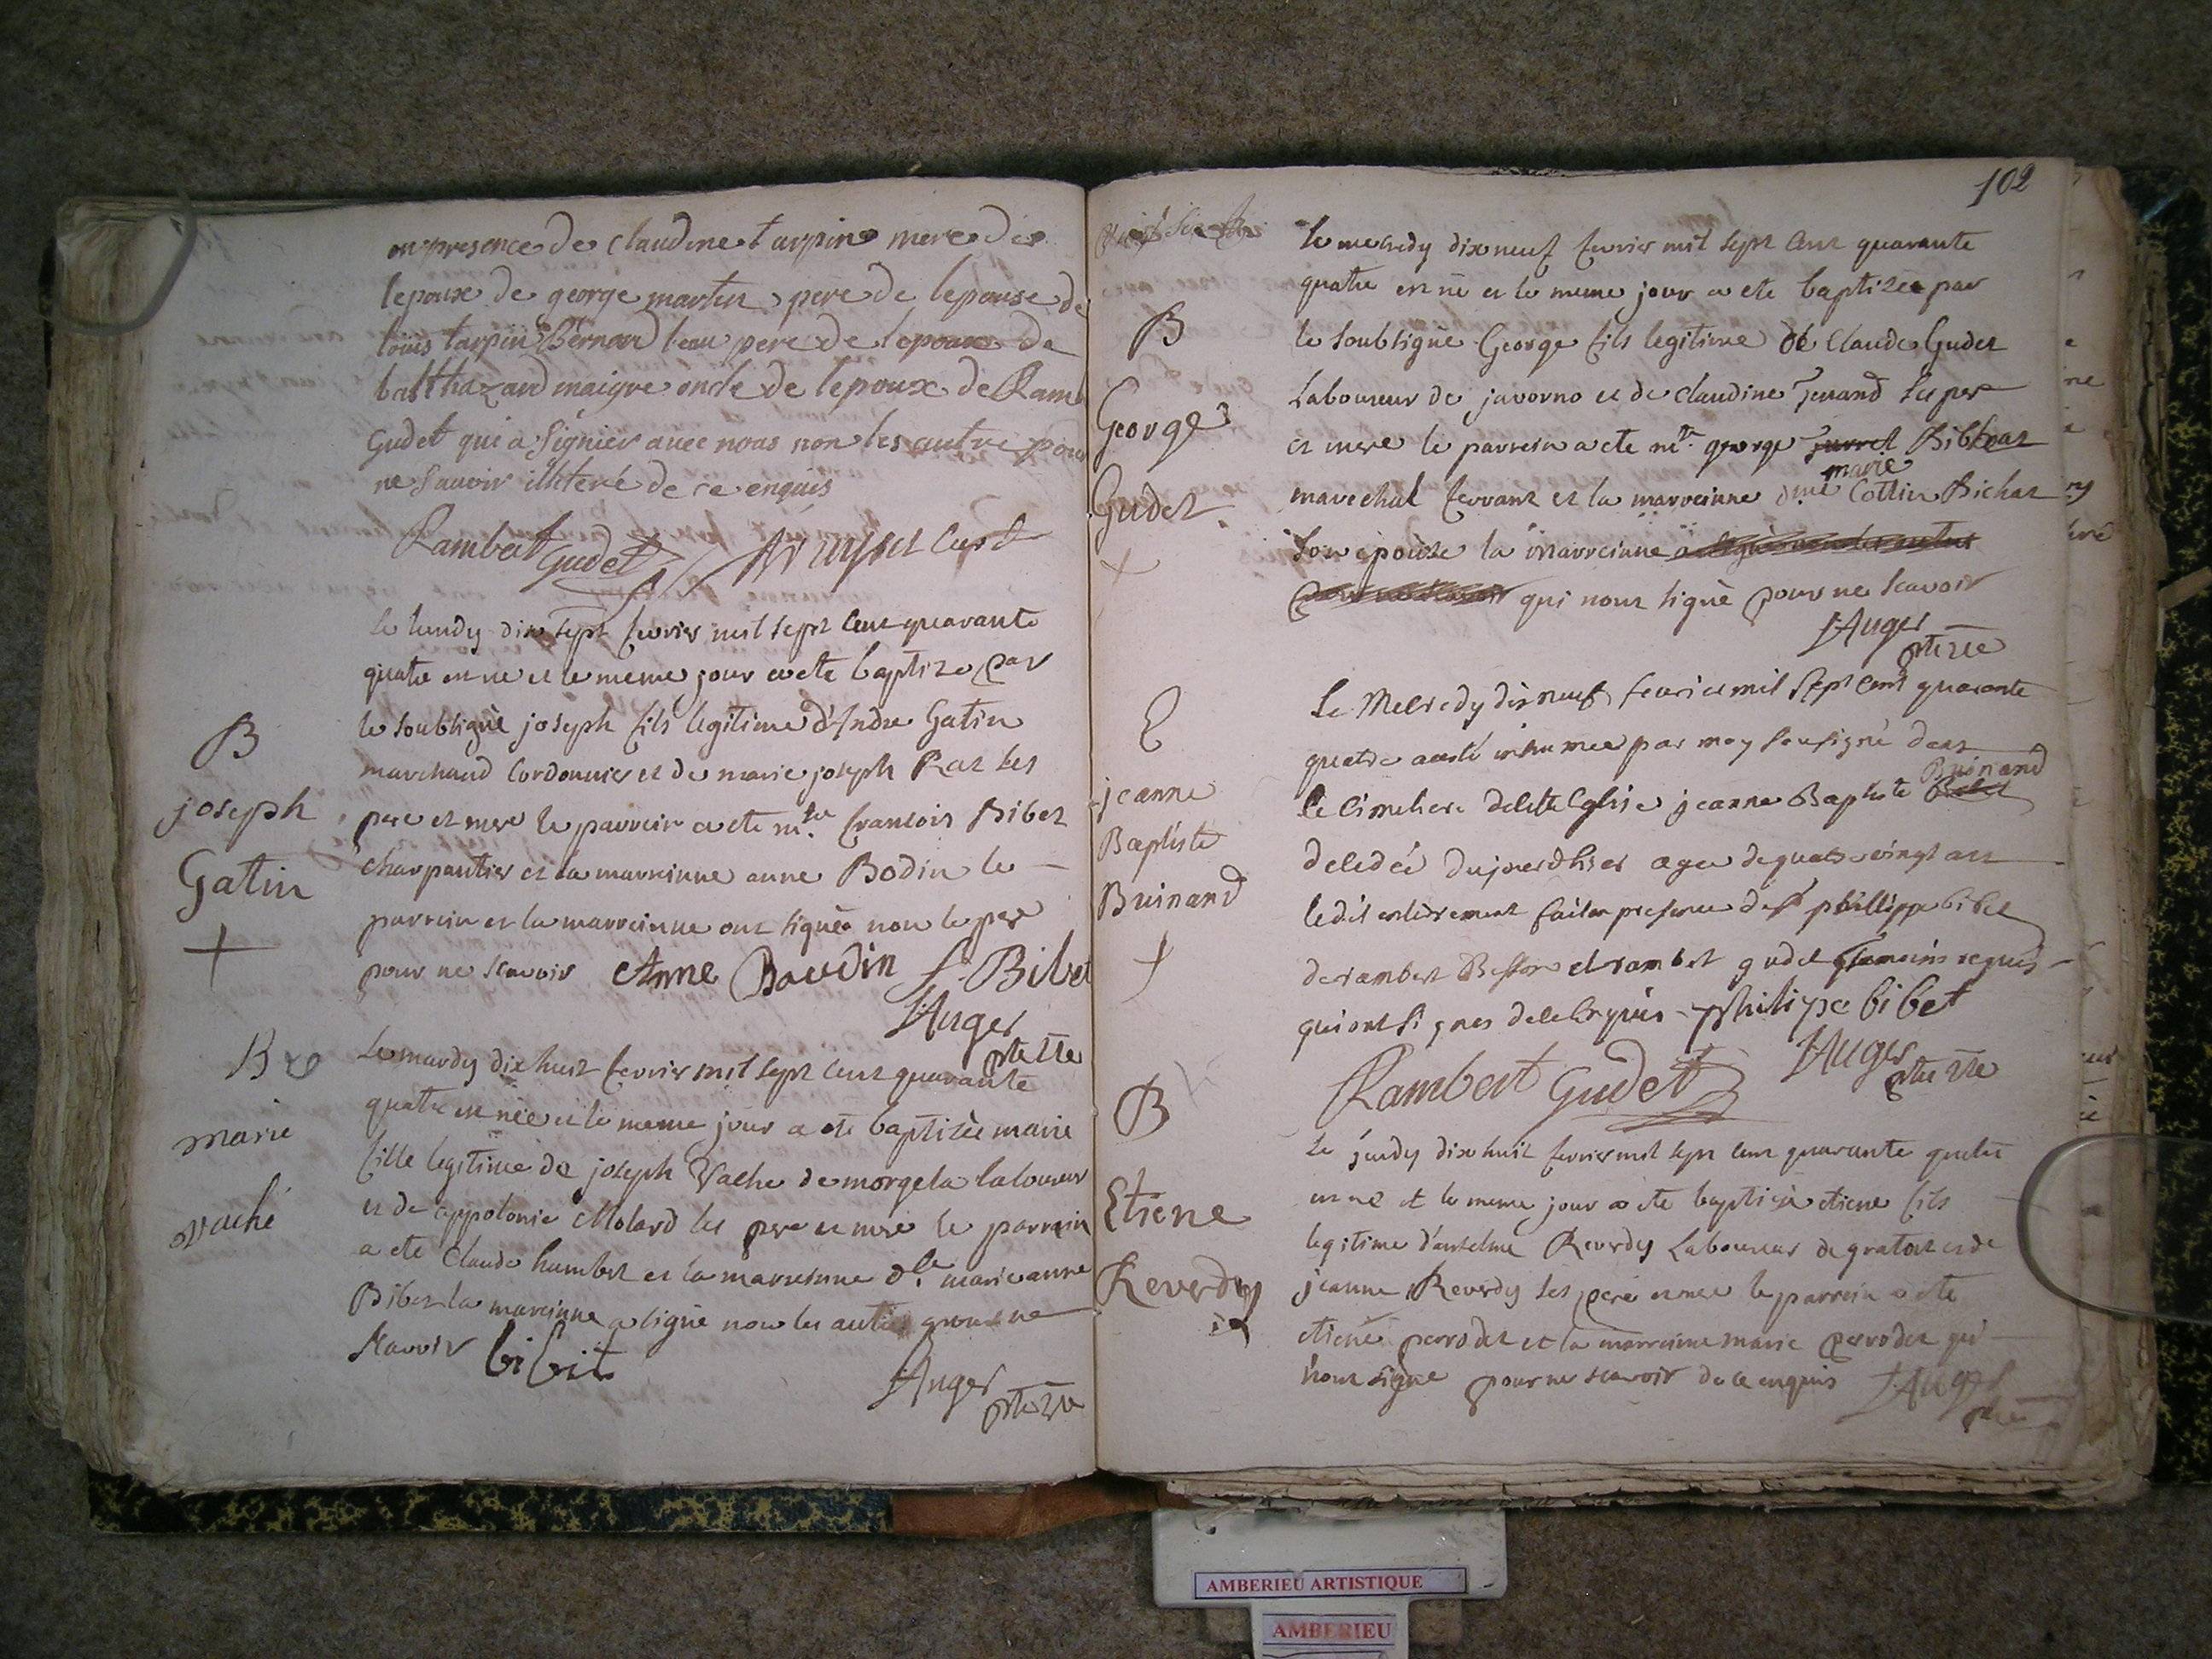 en presence de claudine tarpin mere de
lepoux de george martin pere de lepouse de
louis tarpin Bernard beau pere de lepoux de
balthazard maigre oncle de lepoux de Ramb
Gudet qui a Signier avec nous non les autre pour
ne Savoir illiteré de ce enquis
Rambert Gudet curé
le lundy dix sept fevrier mil sept cent quarante
quatre est né et le meme jour a ete baptize par
B
le soubsigné joseph fils legitime d'Andre Gatin
marchand Cordonnier et de marie joseph Rat ses
joseph
pere et mere le parrein a ete mtre francois Bibet
Gatin
charpantier et la marreinne anne Bodin le
parrein et la marreinne ont signés non le pere
pour ne scavoir Anne Baudin f. Bibet
Auger
ptre vre
B
le mardy dix huit fevrier mil sept cent quarante
quatre est née et le meme jour a ete baptisée marie
marie
fille legitime de joseph Vache de morgela laboureur
vaché
et de appolonie Molard ses pere et mere le parrein
a ete Claude humbert et la marreinne dlle marie anne
Bibet la mareinne a signé non les autres pour ne
scavoir bibit
Auger
ptre vre
102
le mecredy dix neuf fevrier mil sept cent quarante
quatre est né et le meme jour a ete baptisée par
B
le soubsigné George fils legitime de Claude Gudet
George
Laboureur de javorno et de claudine Jenand ses pere
et mere le parrein a ete mtre george Bibet
marie
Gudet
marechal ferrant et la marreinne dme Cottin Bichat
son epouse la marreinne
qui nont signé pour ne scavoir
Auger
ptre vre
E
Le Mecredy dix neuf fevrie mil sept cent quarante
quatre a esté inhumée par moy sousigné dans
Buinand
jeanne
le cimetiere de cette Eglise jeanne Baptiste
Baptiste
decedée du jourd'hier agee de quatre vingt ans
Buinand
ledit enterrement fait en presence de phillippe bibet
de rambert et rambert gudet temoins requis
qui ont signes de ce enquis philipe bibet
Auger
ptre vre
Rambert Gudet
B
le jeudy dix huit fevrier mil sept cent quarante quatre
Etiene
est né et le meme jour a ete baptisé etiene fils
legitime d'antelme Reverdy Laboureur de gratoux et de
Reverdy
jeanne Reverdy ses pere et mere le parrein a ete
etiene perrodet et la marreinne marie perrodet qui
n'ont signé pour ne scavoir de ce enquis Auger
AMBERIEU ARTISTIQUE
AMBERIEU